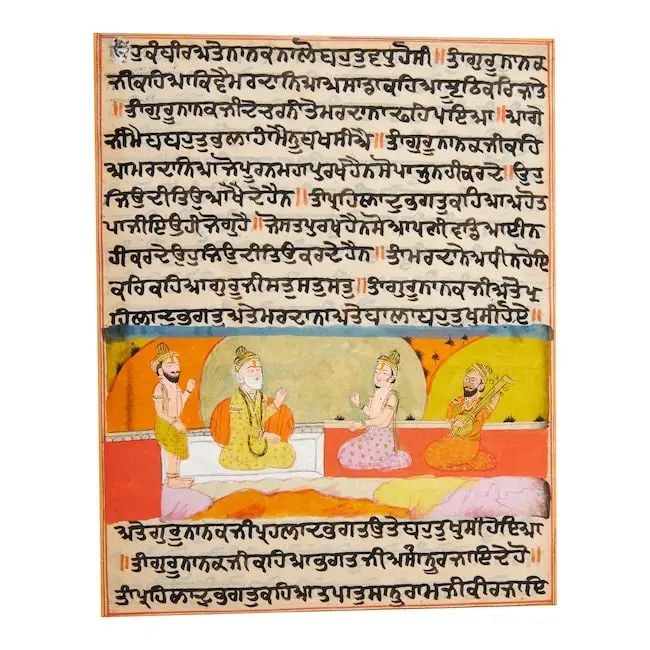 ਕੰਬੀਰਅਤੇਨਾਨਕਨਾਲੋਬਹੁਤਵਪੁਹੋਸੀ॥ਤਾਂਗੁਰੂਨਾਨਕ
ਜੀਕਹਿਆਕਿਵੈਮਰਦਾਨਿਆਅਸਾਡਾਕਹਿਆ
॥ਤਾਂਗੁਰੂਨਾਨਕਜੀਦੇਚਰਨੀਤੇਮਰਦਾਨਾਢਹਿਪਇਆ॥ਆਗੇ
ਜੀਮੈਬਹੁਤੁਭੁਲਾਹਾਂਮੈਨੁਬਖਸੀਐ॥ਤਾਂਗੁਰੂਨਾਨਕਜੀਕਹਿ
ਆਮਰਦਾਨਿਆਜੋਪੂਰਨਮਹਾਪੁਰਖਹੈਨਸੋਪਾਜੁਨਹੀਕਰਦੇ॥ਉਹੁ
ਜਿਉਦੀਤਿਉਆਖੈਦੇਹੈਨ॥ਤਾਂਪ੍ਰਹਿਲਾਦਭਗਤੁਕਹਿਆਅਹੋਤ
ਪਾਜੀਇਉਹੀਜੋਗੁਹੈ॥ਜੋਸਤਪੁਰਖਹੈਨਸੋਆਪਣੀਵਡਿਆਈਨ
ਹੀਕਰਦੇਉਹਿਜਿਉਦੀਤਿਉਕਰਦੇਹੈਨ॥ਤਾਂਮਰਦਾਨੇਅਧੀਨਹੋਇ
ਕਹਿਕਹਿਆਗੁਰੂਜੀਸਤੁਸਤੁਸਤੁ॥ਤਾਂਗੁਰੂਨਾਨਕਜੀਅਤੇਪ੍ਰ
ਹਿਲਾਦਭਗਤੁਅਤੇਮਰਦਾਨਾਅਤੇਬਾਲਾਬਹੁਤੁਖੁਸੀਹੋਏ॥
ਅਤੇਗੁਰੂਨਾਨਕਜੀਪ੍ਰਹਲਾਦਭਗਤਉਤੇਬਹੁਤੁਖੁਸੀਹੋਇਆ
॥ਤਾਂਗੁਰੂਨਾਨਕਜੀਕਹਿਆਭਗਤਜੀਅਸਾਨੁਰਜਾਇਦੇਹੋ
ਤਾਂਪ੍ਰਹਿਲਾਦਭਗਤੁਕਹਿਆਤਪਾਤੁਸਾਨੁਰਾਮਜੀਕੀਰਜਾਇ